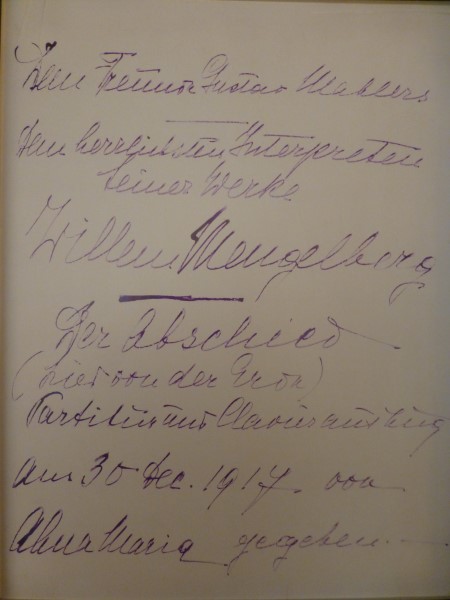 Dem Freunde Gustav Mahlers
dem herrlichsten Interpreten
seiner Werke
Willem Mengelberg
Der Abschied
(Lied von der Erde)
Partitur und Clavierauszug
am 30 Dec. 1917 von
Alma Maria gegeben.